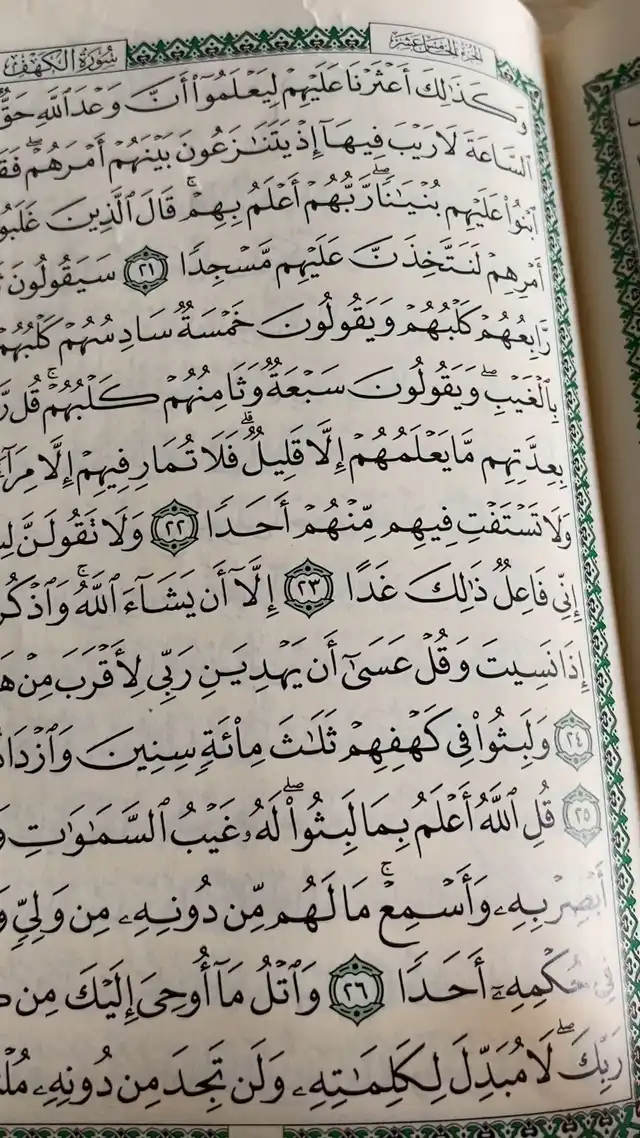 الجزء الخامس عشر
سُورَةُ الكَهْفِ
وَكَذَٰلِكَ أَعْثَرْنَا عَلَيْهِمْ لِيَعْلَمُوٓا۟ أَنَّ وَعْدَ ٱللَّهِ حَقٌّ
ٱلسَّاعَةَ لَا رَيْبَ فِيهَآ إِذْ يَتَنَٰزَعُونَ بَيْنَهُمْ أَمْرَهُمْ ۖ
ٱبْنُوا۟ عَلَيْهِم بُنْيَٰنًا ۖ رَّبُّهُمْ أَعْلَمُ بِهِمْ ۚ قَالَ ٱلَّذِينَ
أَمْرِهِمْ لَنَتَّخِذَنَّ عَلَيْهِم مَّسْجِدًا ٢١ سَيَقُولُونَ
رَّابِعُهُمْ كَلْبُهُمْ وَيَقُولُونَ خَمْسَةٌ سَادِسُهُمْ كَلْبُهُمْ
بِٱلْغَيْبِ ۖ وَيَقُولُونَ سَبْعَةٌ وَثَامِنُهُمْ كَلْبُهُمْ ۚ قُل
بِعِدَّتِهِم مَّا يَعْلَمُهُمْ إِلَّا قَلِيلٌ ۗ فَلَا تُمَارِ فِيهِمْ إِلَّا
وَلَا تَسْتَفْتِ فِيهِم مِّنْهُمْ أَحَدًا ٢٢ وَلَا تَقُولَنَّ
إِنِّى فَاعِلٌ ذَٰلِكَ غَدًا ٢٣ إِلَّآ أَن يَشَآءَ ٱللَّهُ ۚ
إِذَا نَسِيتَ وَقُلْ عَسَىٰٓ أَن يَهْدِيَنِ رَبِّى لِأَقْرَبَ مِنْ
٢٤ وَلَبِثُوا۟ فِى كَهْفِهِمْ ثَلَٰثَ مِا۟ئَةٍ سِنِينَ
٢٥ قُلِ ٱللَّهُ أَعْلَمُ بِمَا لَبِثُوا۟ ۖ لَهُۥ غَيْبُ ٱلسَّمَٰوَٰتِ
أَبْصِرْ بِهِۦ وَأَسْمِعْ ۚ مَا لَهُم مِّن دُونِهِۦ مِن وَلِىٍّ
فِى حُكْمِهِۦٓ أَحَدًا ٢٦ وَٱتْلُ مَآ أُوحِىَ إِلَيْكَ مِن
رَبِّكَ ۖ لَا مُبَدِّلَ لِكَلِمَٰتِهِۦ وَلَن تَجِدَ مِن دُونِهِۦ